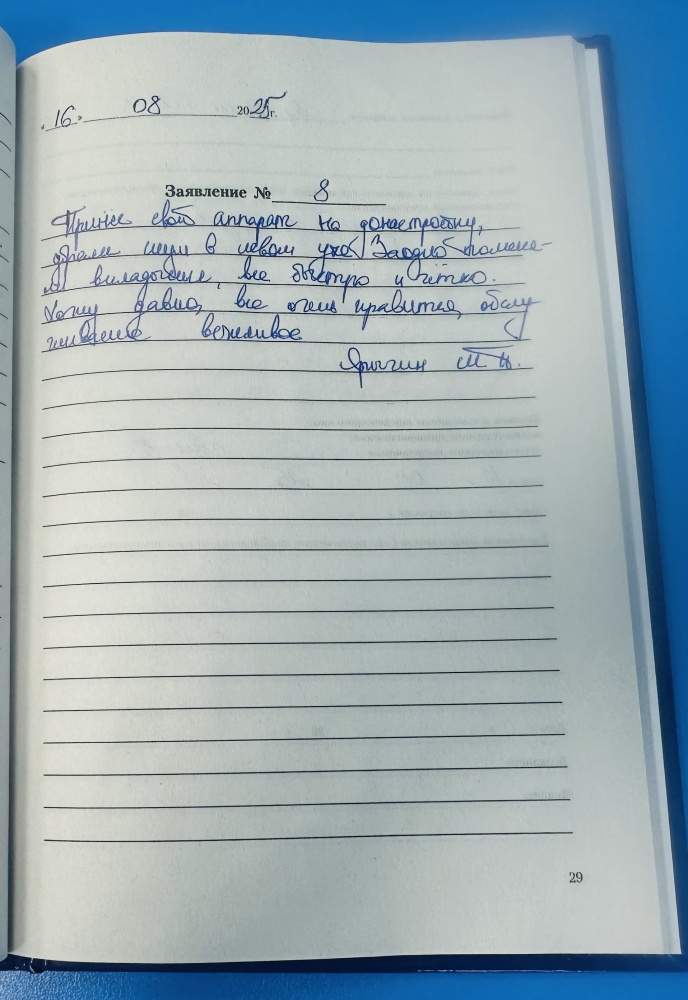 «16» 08 2025 г.
Заявление № 8
Принёс свой аппарат на донастройку,
убрали шум в левом ухе. Заодно поменя-
ли вкладыши, все быстро и чётко.
Хожу давно, все очень нравится, обслу
живание вежливое
М
29